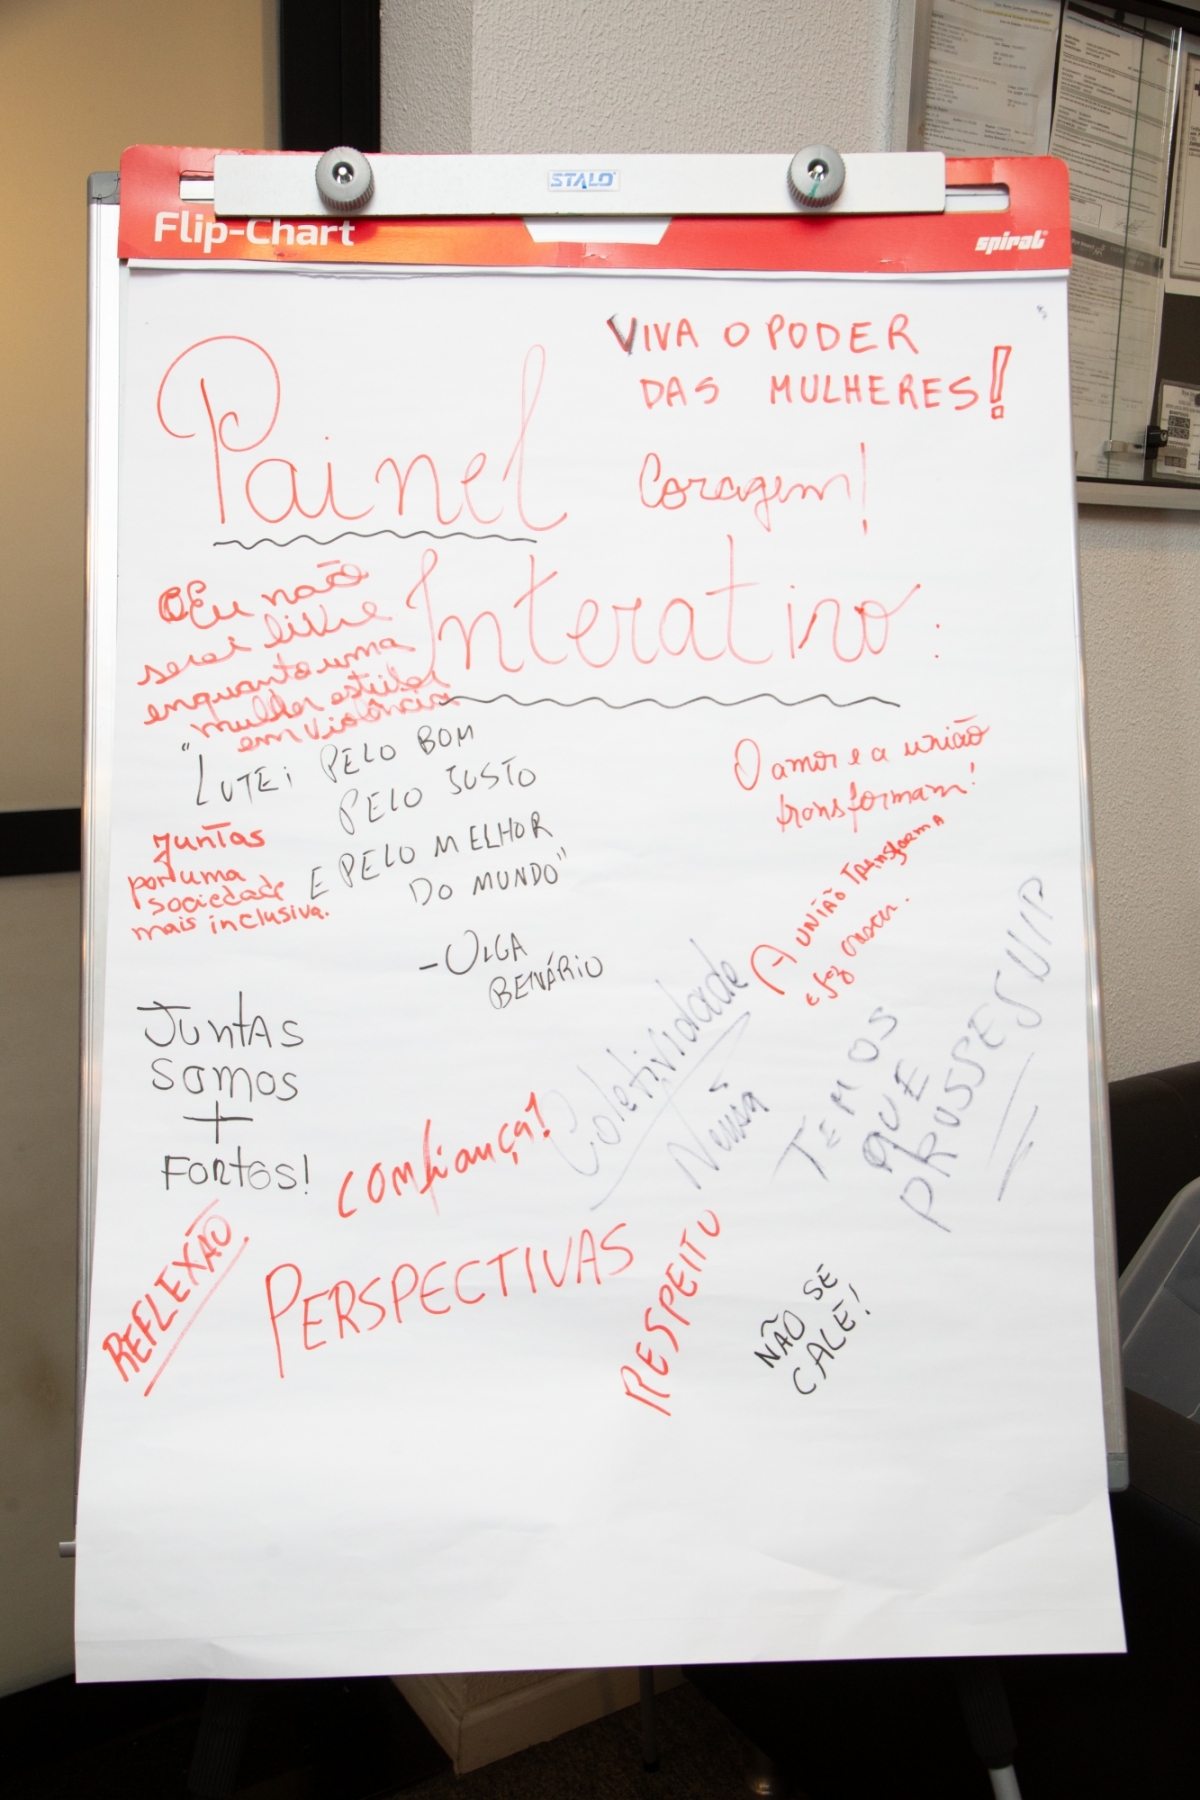 STALO
Flip-Chart
spiral
VIVA O PODER
DAS MULHERES!
Painel
Coragem!
Interativo:
Eu não
serei livre
enquanto uma
mulher estiver
em violência
"LUTEi PELO BOM
PELO JUSTO
E PELO MELHOR
DO MUNDO"
-OLGA
BENÁRIO
O amor e a união
transformam!
Juntas
por uma
sociedade
mais inclusiva.
A UNIÃO TRANSFORMA
e faz crescer.
JUNTAS
SOMOS
+
FORTES!
Coletividade
Nensa
TEMOS
QUE
PROSSEGUIR
confiança!
REFLEXÃO.
PERSPECTIVAS
RESPEITO
NÃO SE
CALE!